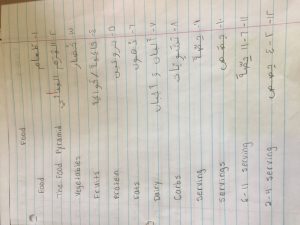 Food
Food ١- طعام
The Food Pyramid ٢- الهرم الغذائي
Vegetables ٣- خضار
Fruits ٤- فاكهة / فواكه
Protein ٥- بروتين
Fats ٦- دهون
Dairy ٧- ألبان
Carbs ٨-
Serving ٩- حصة
Servings ١٠- حصص
6-11 Serving ١١- ٦-١١ حصة
2-4 Serving ١٢- ٢-٤ حصص